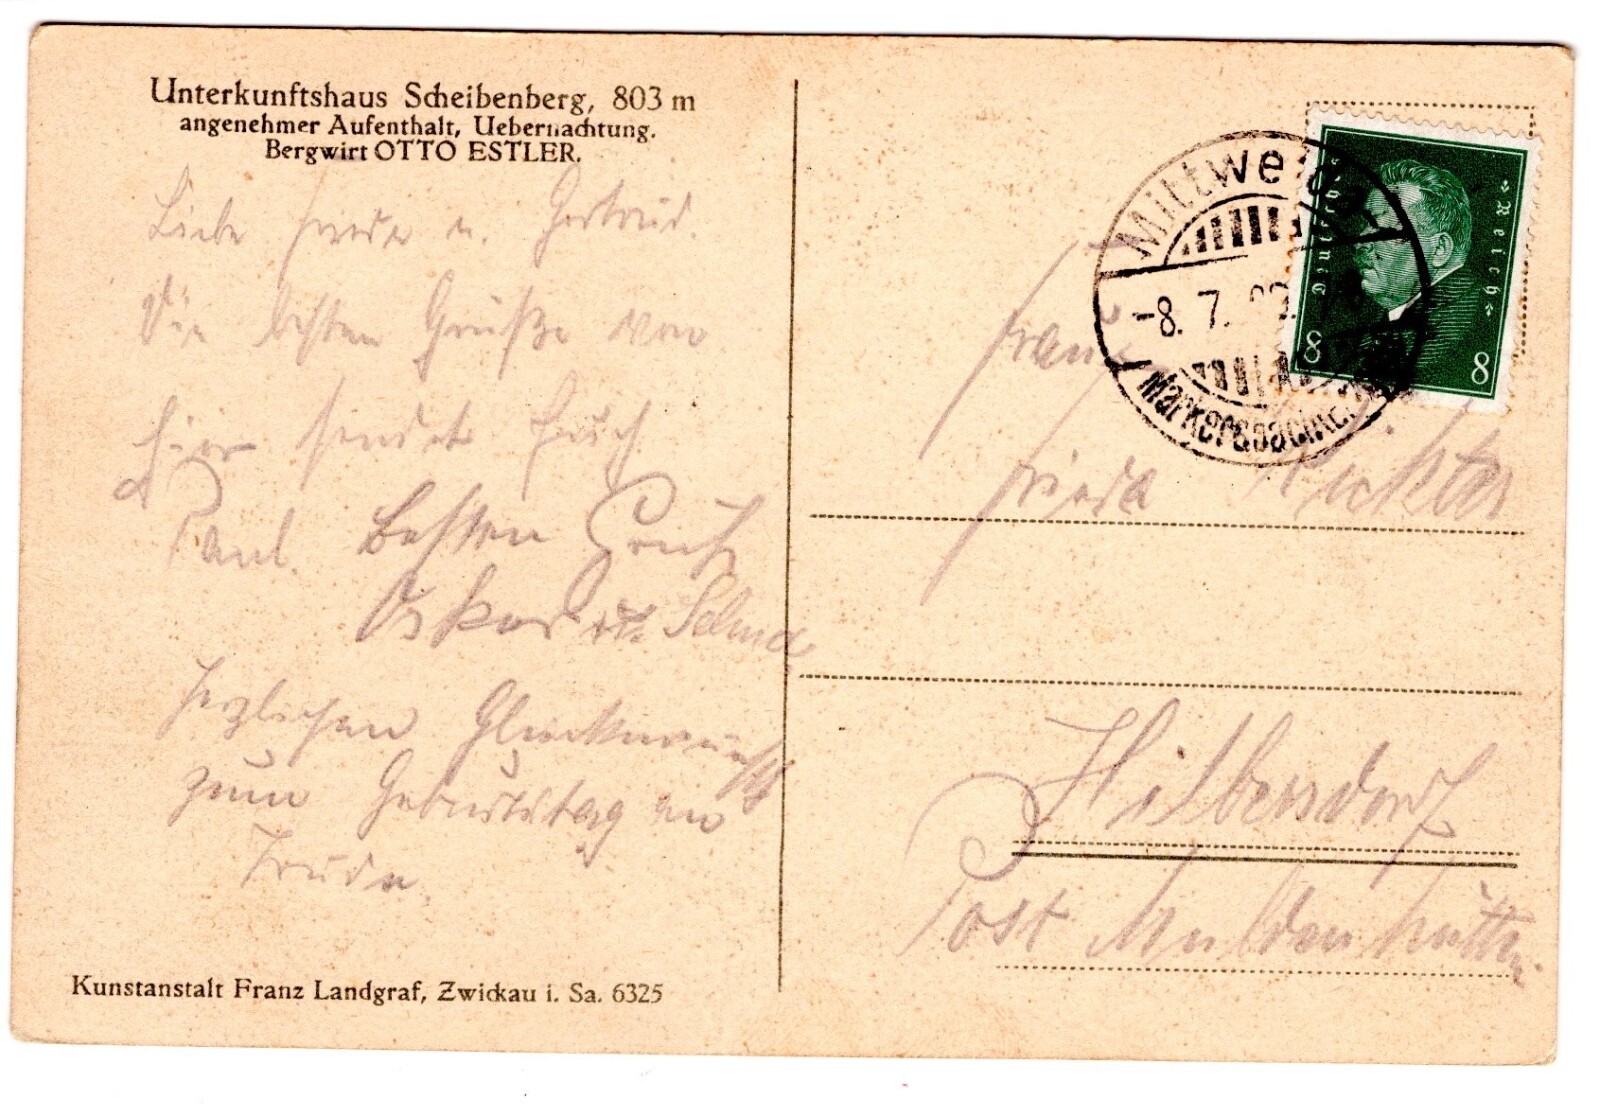 Unterkunftshaus Scheibenberg, 803 m
angenehmer Aufenthalt, Uebernachtung.
Bergwirt OTTO ESTLER.
Liebe Frieda u. Gertrud.
Die besten Grüße von
hier sendet Euch
Paul. Besten Gruß
Oskar u. Selma
Herzlichen Glückwunsch
zum Geburtstag an
Trude
Kunstanstalt Franz Landgraf, Zwickau i. Sa. 6325
Mittweida
-8. 7.
Markersbach
Deutsches Reich
8 8
Frau
Frieda Richter
Hilbersdorf
Post Muldenhütten.